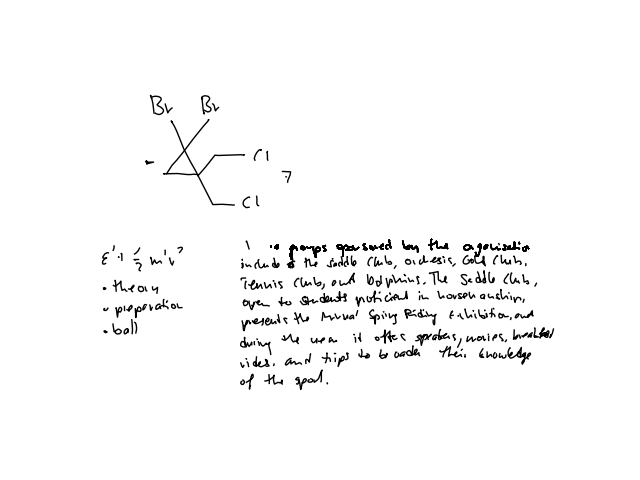 Br Br
Cl
Cl
• theory
• preparation
• ball
groups sponsored by the organization
include the Saddle Club, Orchesis, Golf Club,
Tennis Club, and Dolphins. The Saddle Club,
open to students proficient in horsemanship,
presents the Annual Spring Riding Exhibition, and
during the year it offers speakers, movies, breakfast
rides, and trips to broaden their knowledge
of the sport.